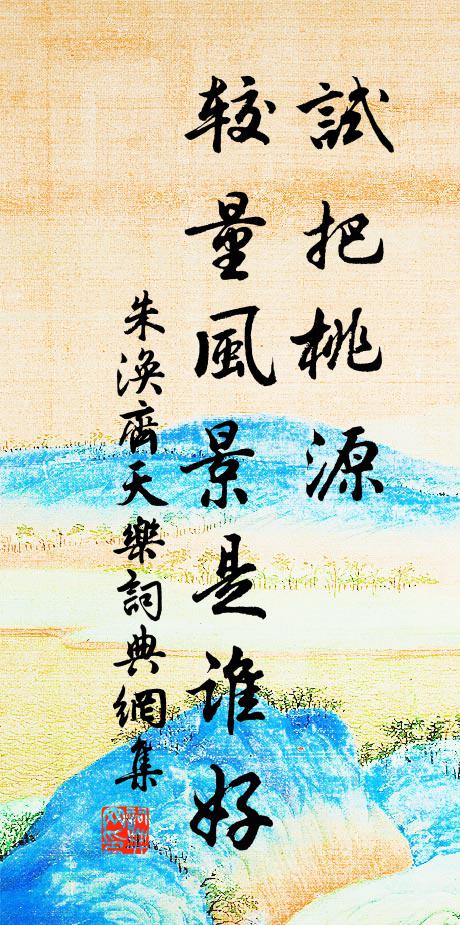 試把桃源
較量風景是誰好
朱渙齊天樂詞典網集